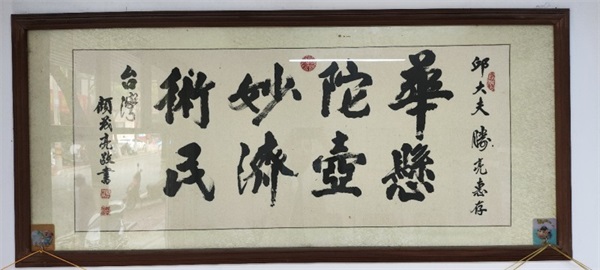 邱大夫勝亮惠存
華陀妙術
懸壺濟民
台灣
亮敬書